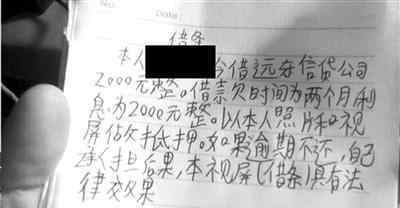 No.
Date
借条
本人 今借远安信贷公司
2000元整。借款时间为两个月利
息为2000元整。以本人照片和视
屏做抵押。如果逾期不还,自己
承担后果,本视屏(借条)具有法
律效果